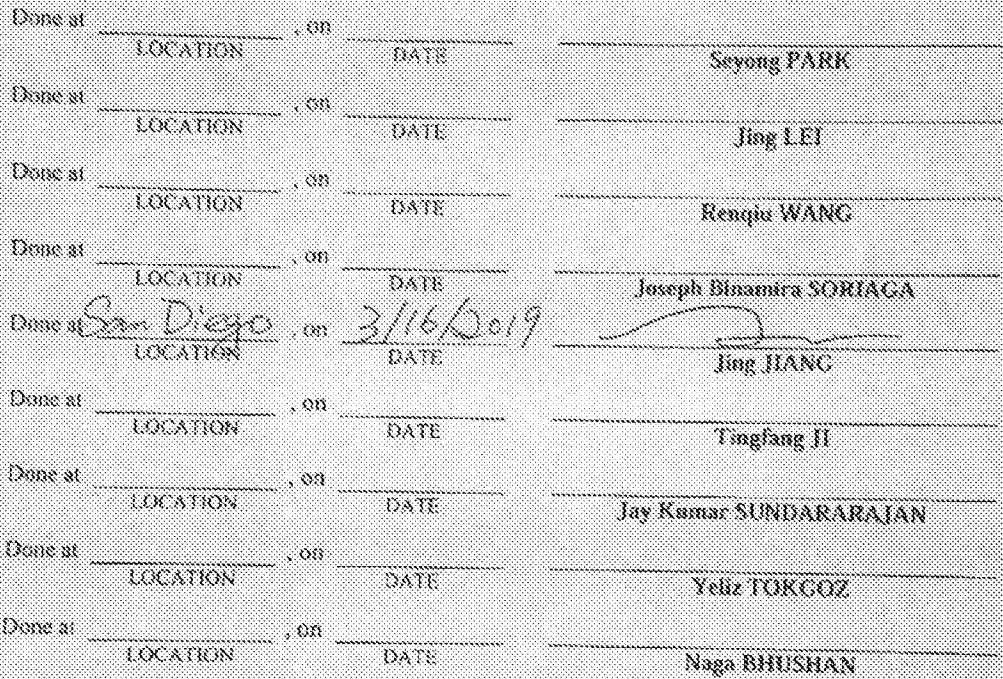 Done at , on
LOCATION DATE Seyong PARK
Done at , on
LOCATION DATE Jing LEI
Done at , on
LOCATION DATE Renqiu WANG
Done at , on
LOCATION DATE Joseph Binamira SORIAGA
Done at San Diego , on 3/16/2019
LOCATION DATE Jing JIANG
Done at , on
LOCATION DATE Tingfang JI
Done at , on
LOCATION DATE Jay Kumar SUNDARARAJAN
Done at , on
LOCATION DATE Yeliz TOKGOZ
Done at , on
LOCATION DATE Naga BHUSHAN